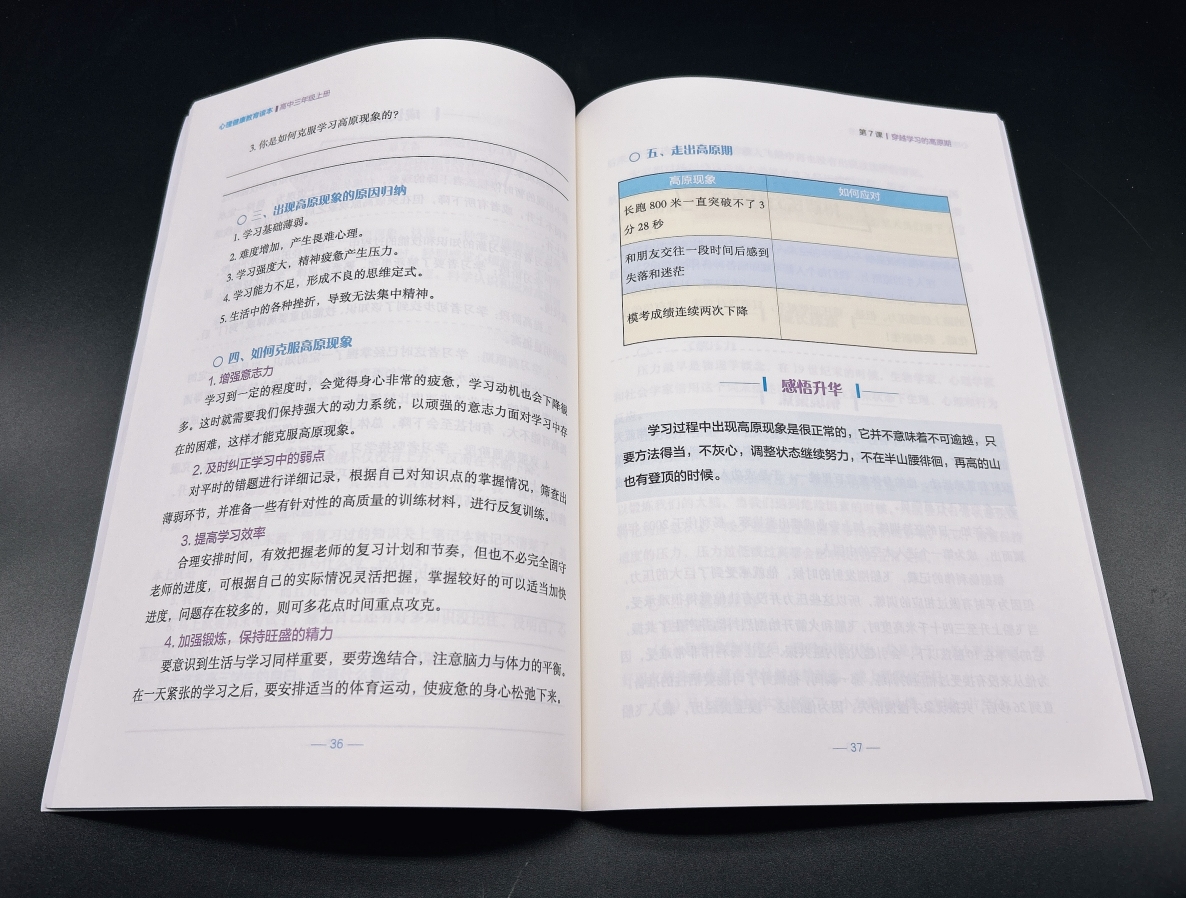 心理健康教育读本 高中三年级上册
3. 你是如何克服学习高原现象的?
三、出现高原现象的原因归纳
1. 学习基础薄弱。
2. 难度增加，产生畏难心理。
3. 学习强度大，精神疲惫产生压力。
4. 学习能力不足，形成不良的思维定式。
5. 生活中的各种挫折，导致无法集中精神。
四、如何克服高原现象
1. 增强意志力
学习到一定的程度时，会觉得身心非常的疲惫，学习动机也会下降很
多。这时就需要我们保持强大的动力系统，以顽强的意志力面对学习中存
在的困难，这样才能克服高原现象。
2. 及时纠正学习中的弱点
对平时的错题进行详细记录，根据自己对知识点的掌握情况，筛查出
薄弱环节，并准备一些有针对性的高质量的训练材料，进行反复训练。
3. 提高学习效率
合理安排时间，有效把握老师的复习计划和节奏，但也不必完全固守
老师的进度，可根据自己的实际情况灵活把握，掌握较好的可以适当加快
进度，问题存在较多的，则可多花点时间重点攻克。
4. 加强锻炼，保持旺盛的精力
要意识到生活与学习同样重要，要劳逸结合，注意脑力与体力的平衡。
在一天紧张的学习之后，要安排适当的体育运动，使疲惫的身心松弛下来。
— 36 —
第7课 穿越学习的高原期
五、走出高原期
高原现象 如何应对
长跑 800 米一直突破不了 3
分 28 秒
和朋友交往一段时间后感到
失落和迷茫
模考成绩连续两次下降
感悟升华
学习过程中出现高原现象是很正常的，它并不意味着不可逾越，只
要方法得当，不灰心，调整状态继续努力，不在半山腰徘徊，再高的山
也有登顶的时候。
— 37 —